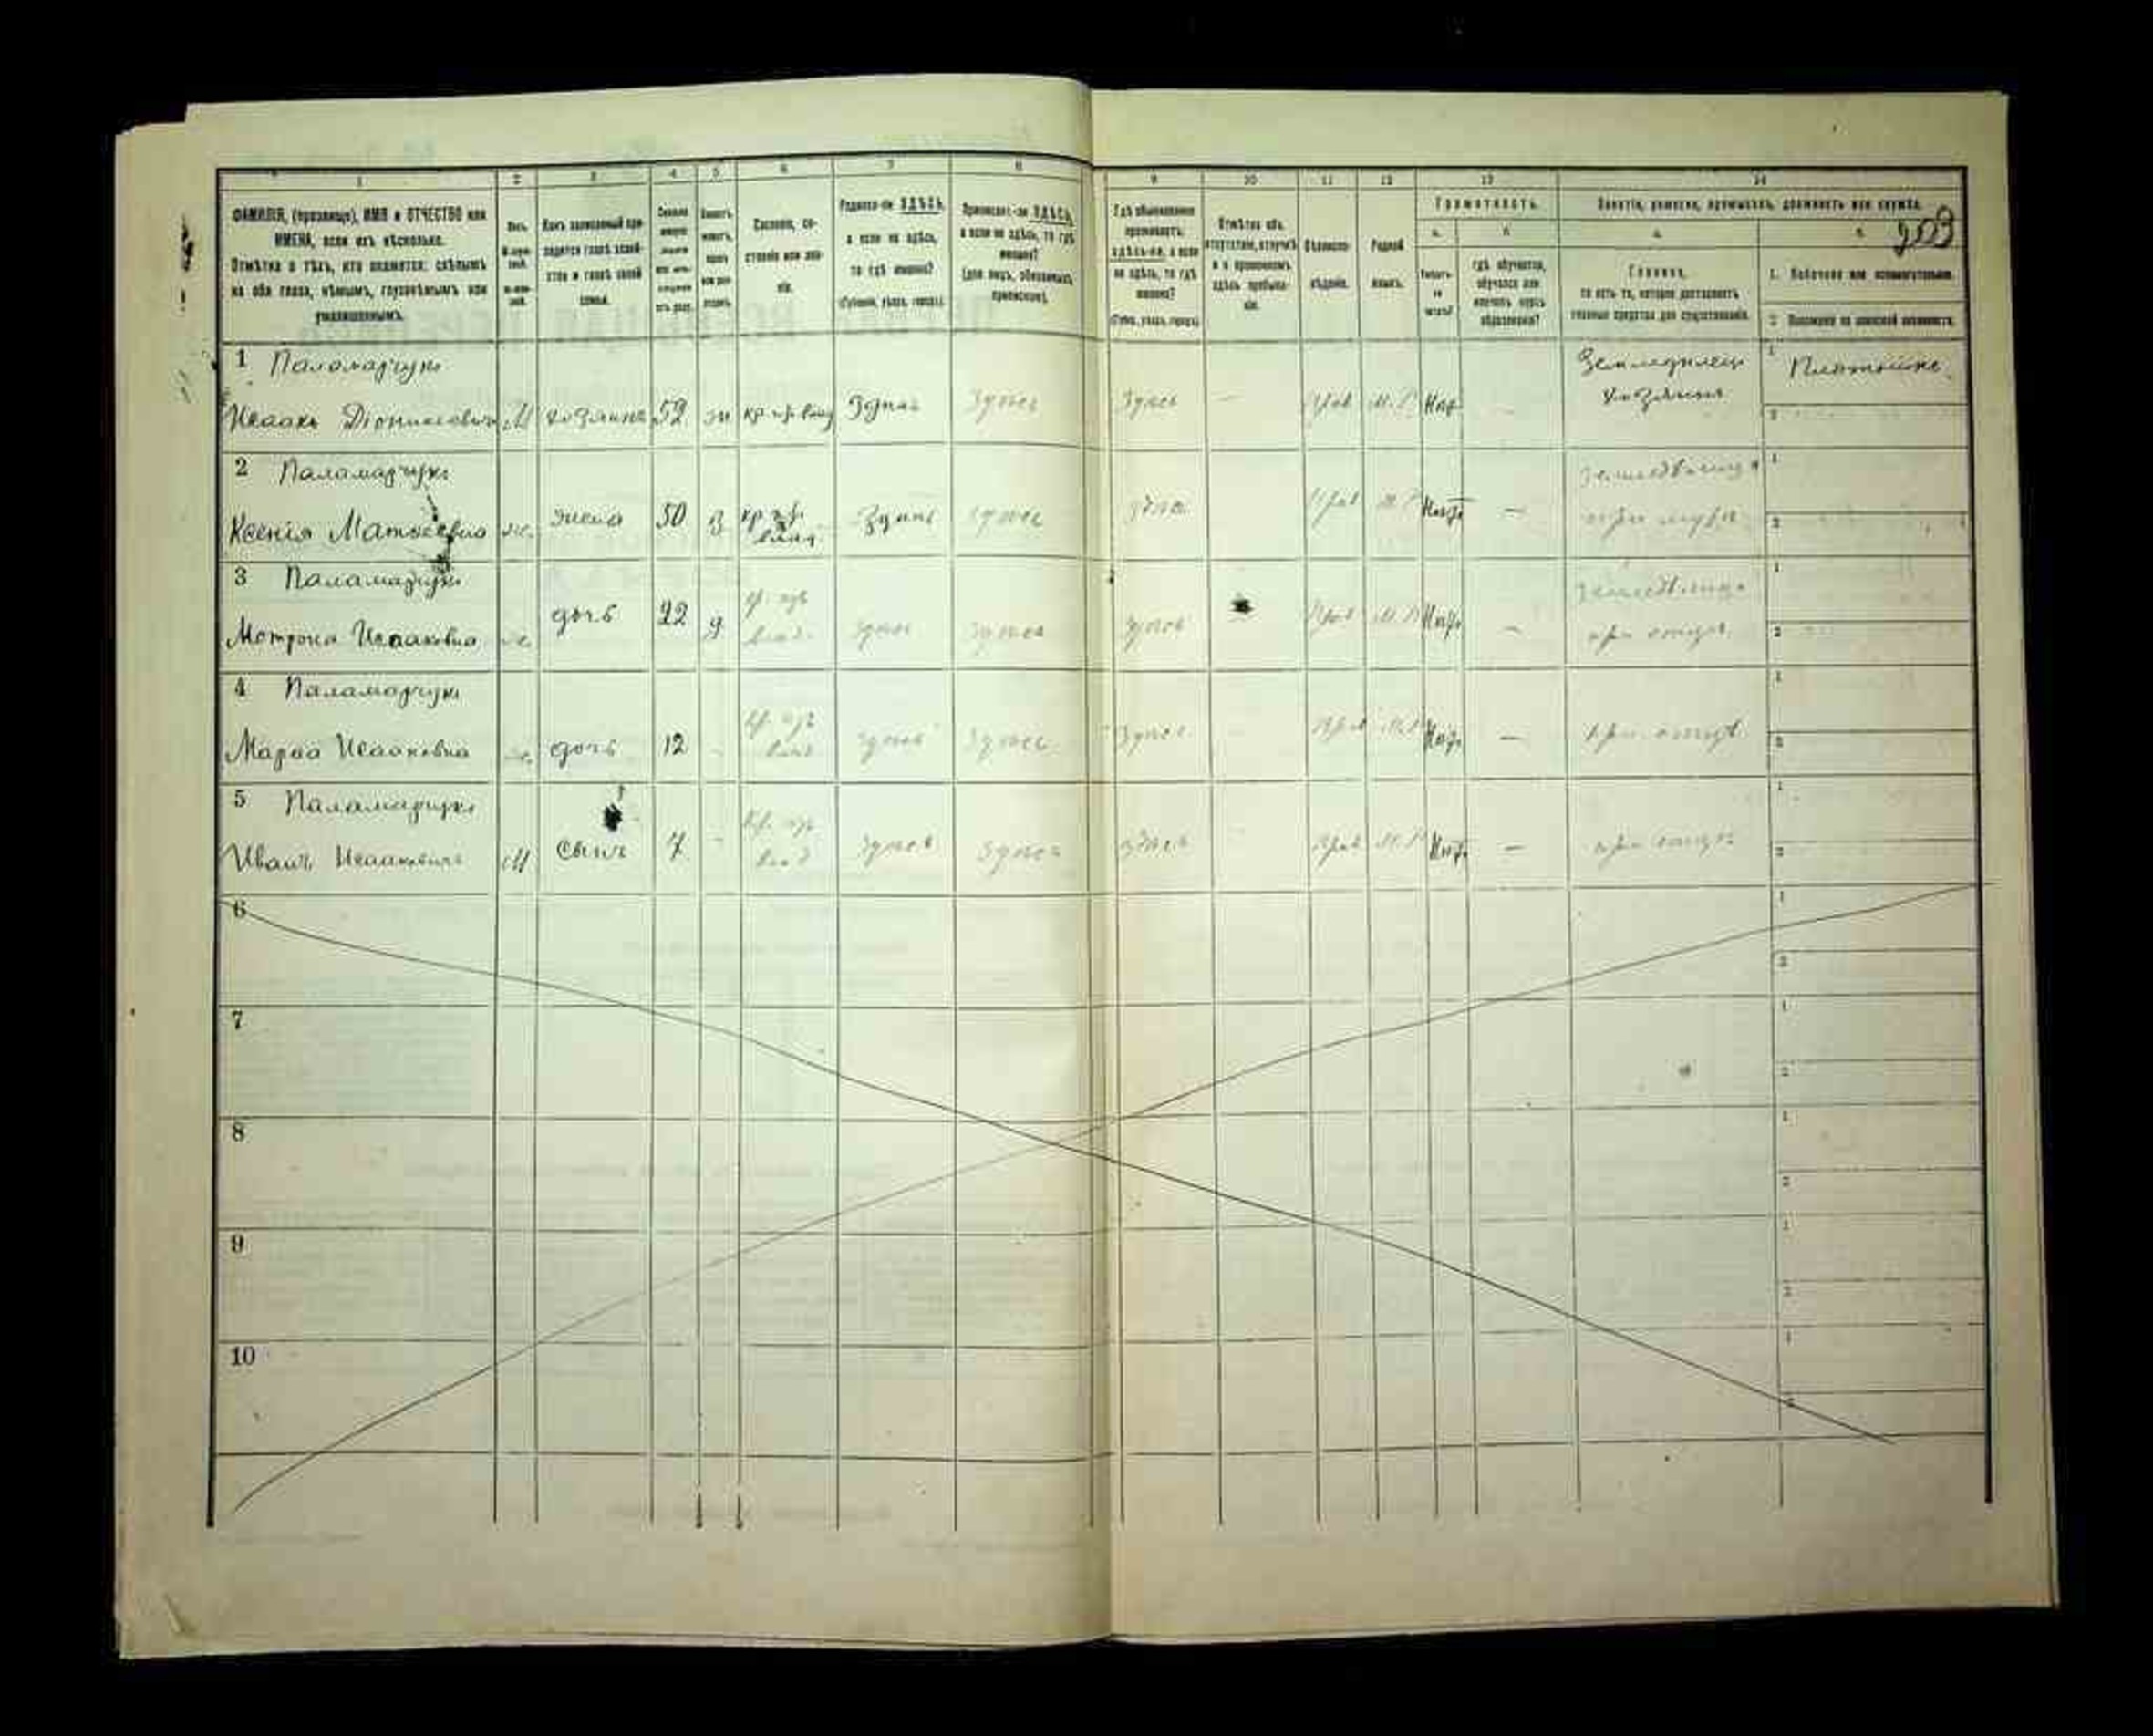 1 2 3 4 5 6 7 8 9 10 11 12 13 14
ФАМИЛІЯ, (прозвище), ИМЯ и ОТЧЕСТВО или
ИМЕНА, если ихъ нѣсколько.
Отмѣтка о тѣхъ, кто окажется: слѣпымъ
на оба глаза, нѣмымъ, глухонѣмымъ или
умалишеннымъ.
Полъ.
Какъ записанный при-
ходится главѣ хозяй-
ства и главѣ своей
семьи.
Сословіе, со-
стояніе или зва-
ніе.
Родился-ли ЗДѢСЬ,
а если не здѣсь,
то гдѣ именно?
(Губернія, уѣздъ, городъ).
Приписанъ-ли ЗДѢСЬ,
а если не здѣсь, то гдѣ
именно?
(для лицъ, обязанныхъ
припискою).
Гдѣ обыкновенно
проживаетъ:
здѣсь-ли, а если
не здѣсь, то гдѣ
именно?
(Губ., уѣздъ, городъ).
Отмѣтка объ
отсутствіи, отлучкѣ
и о временномъ
здѣсь пребыва-
ніи.
Вѣроиспо-
вѣданіе.
Родной
языкъ.
Грамотность.
а. б.
Умѣетъ-
ли
читать?
гдѣ обучается,
обучался или
кончилъ курсъ
образованія?
Занятіе, ремесло, промыселъ, должность или служба.
203
а. б.
Главное,
то есть то, которое доставляетъ
главныя средства для существованія.
1. Побочное или вспомогательное.
2. Положеніе по воинской повинности.
1 Паламарчукъ
Исаакъ Діонисовичъ М хозяинъ 52 ж здѣсь здѣсь здѣсь Прав М.Р. Негр
Земледѣлецъ
хозяинъ
2 Паламарчукъ
Ксенія Матвѣевна ж. жена 50 з кр. влад. здѣсь здѣсь здѣсь Прав М.Р. Негр. —
земледѣлица
при мужѣ
3 Паламарчукъ
Мотрона Исааковна ж дочь 22 д влад. здѣсь здѣсь здѣсь Прав М.Р. Негр. —
земледѣлица
при отцѣ
4 Паламарчукъ
Марѳа Исааковна ж. дочь 12 здѣсь здѣсь здѣсь Прав М.Р. Негр. —
при отцѣ
5 Паламарчукъ
Иванъ Исааковичъ М сынъ 7 здѣсь здѣсь здѣсь Прав М.Р. Негр. —
при отцѣ
6
7
8
9
10